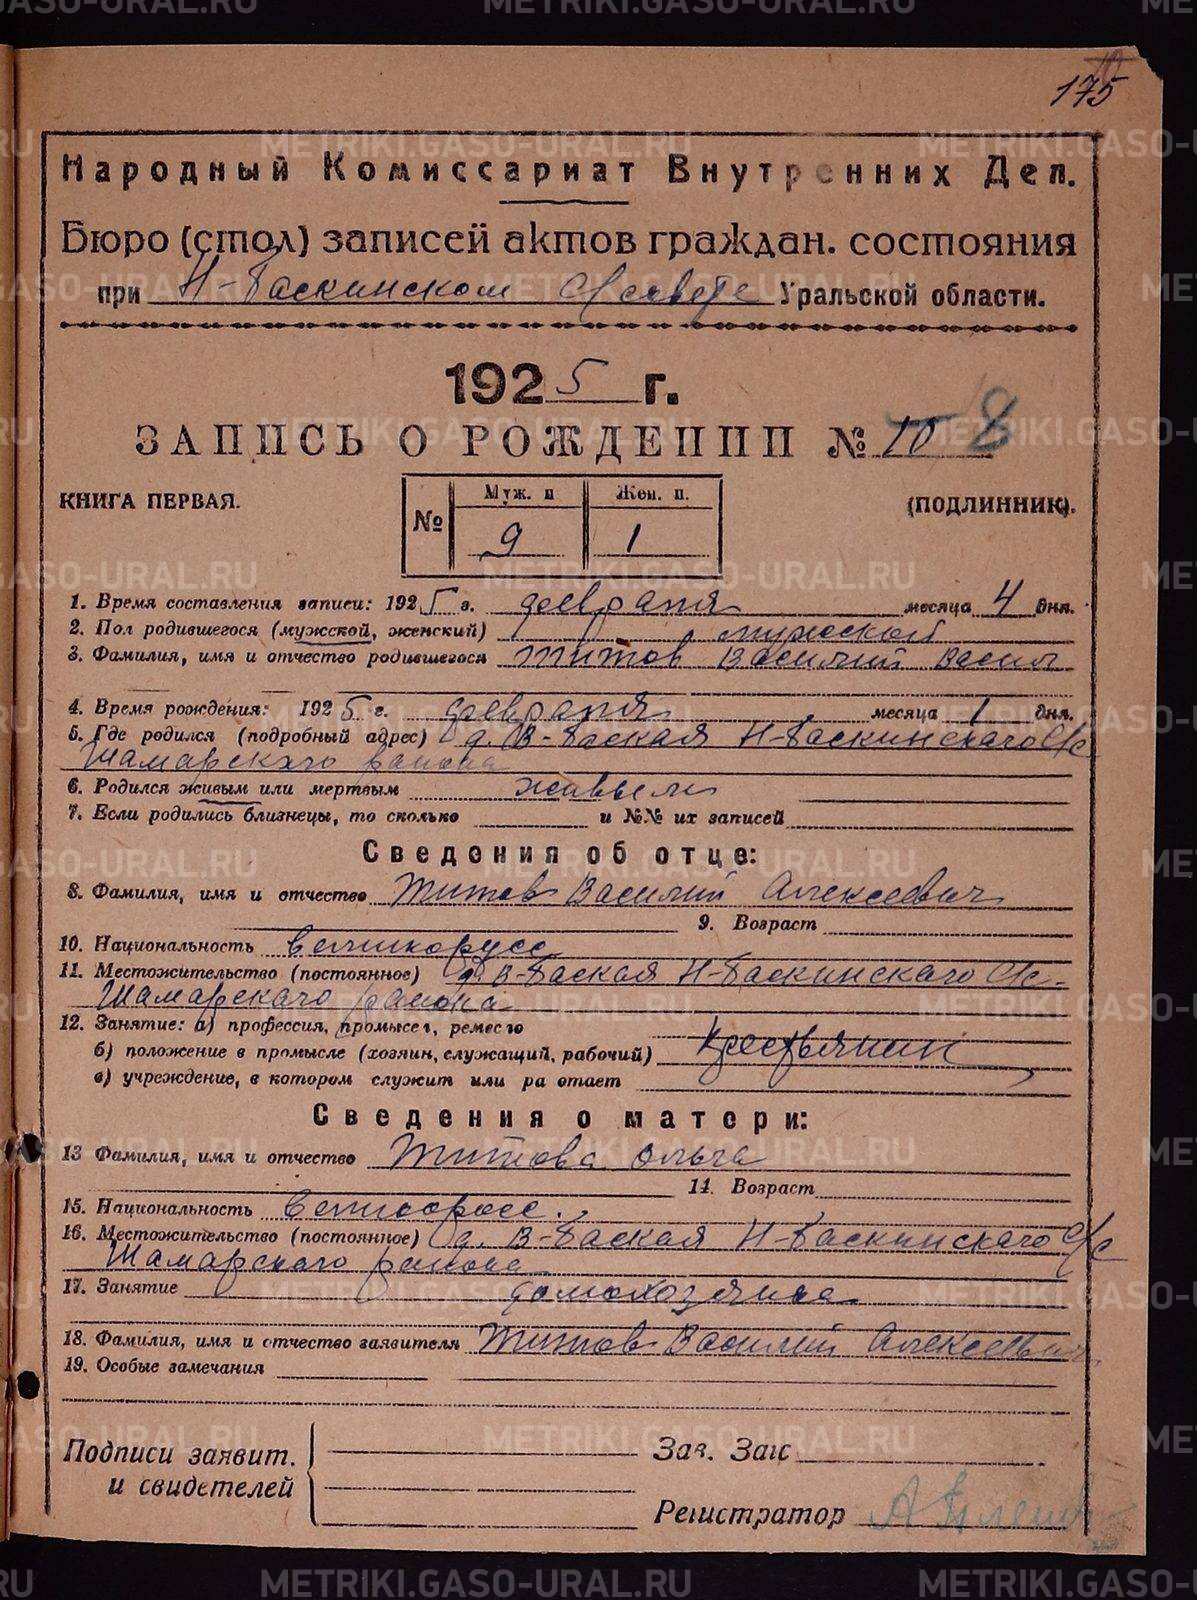 175
Народный Комиссариат Внутренних Дел.
Бюро (стол) записей актов граждан. состояния
при Н-Баскинском С/совете Уральской области.
1925 г.
ЗАПИСЬ О РОЖДЕНИИ № 10 8
КНИГА ПЕРВАЯ.
(ПОДЛИННИК).
№ Муж. п Жен. п.
9 1
1. Время составления записи: 1925 г. февраля месяца 4 дня.
2. Пол родившегося (мужской, женский) мужской
3. Фамилия, имя и отчество родившегося Титов Василий Васил
4. Время рождения: 1925 г. февраля месяца 1 дня.
5. Где родился (подробный адрес) д. В-Баская Н-Баскинскаго С/с
Шамарскаго района
6. Родился живым или мертвым живым
7. Если родились близнецы, то сколько и №№ их записей
Сведения об отце:
8. Фамилия, имя и отчество Титов Василий Алексеевич
9. Возраст
10. Национальность великорусс
11. Местожительство (постоянное) д. В-Баская Н-Баскинскаго С/с
Шамарскаго района
12. Занятие: а) профессия, промысел, ремесло
б) положение в промысле (хозяин, служащий, рабочий) Крестьянин
в) учреждение, в котором служит или ра отает
Сведения о матери:
13 Фамилия, имя и отчество Титова Ольга
14. Возраст
15. Национальность
16. Местожительство (постоянное) д. В-Баская Н-Баскинскаго С/с
Шамарского района
17. Занятие домохозяика
18. Фамилия, имя и отчество заявителя Титов Василий Алексеевич
19. Особые замечания
Подписи заявит. и свидетелей
Зав. Загс
Регистратор
METRIKI.GASO-URAL.RU